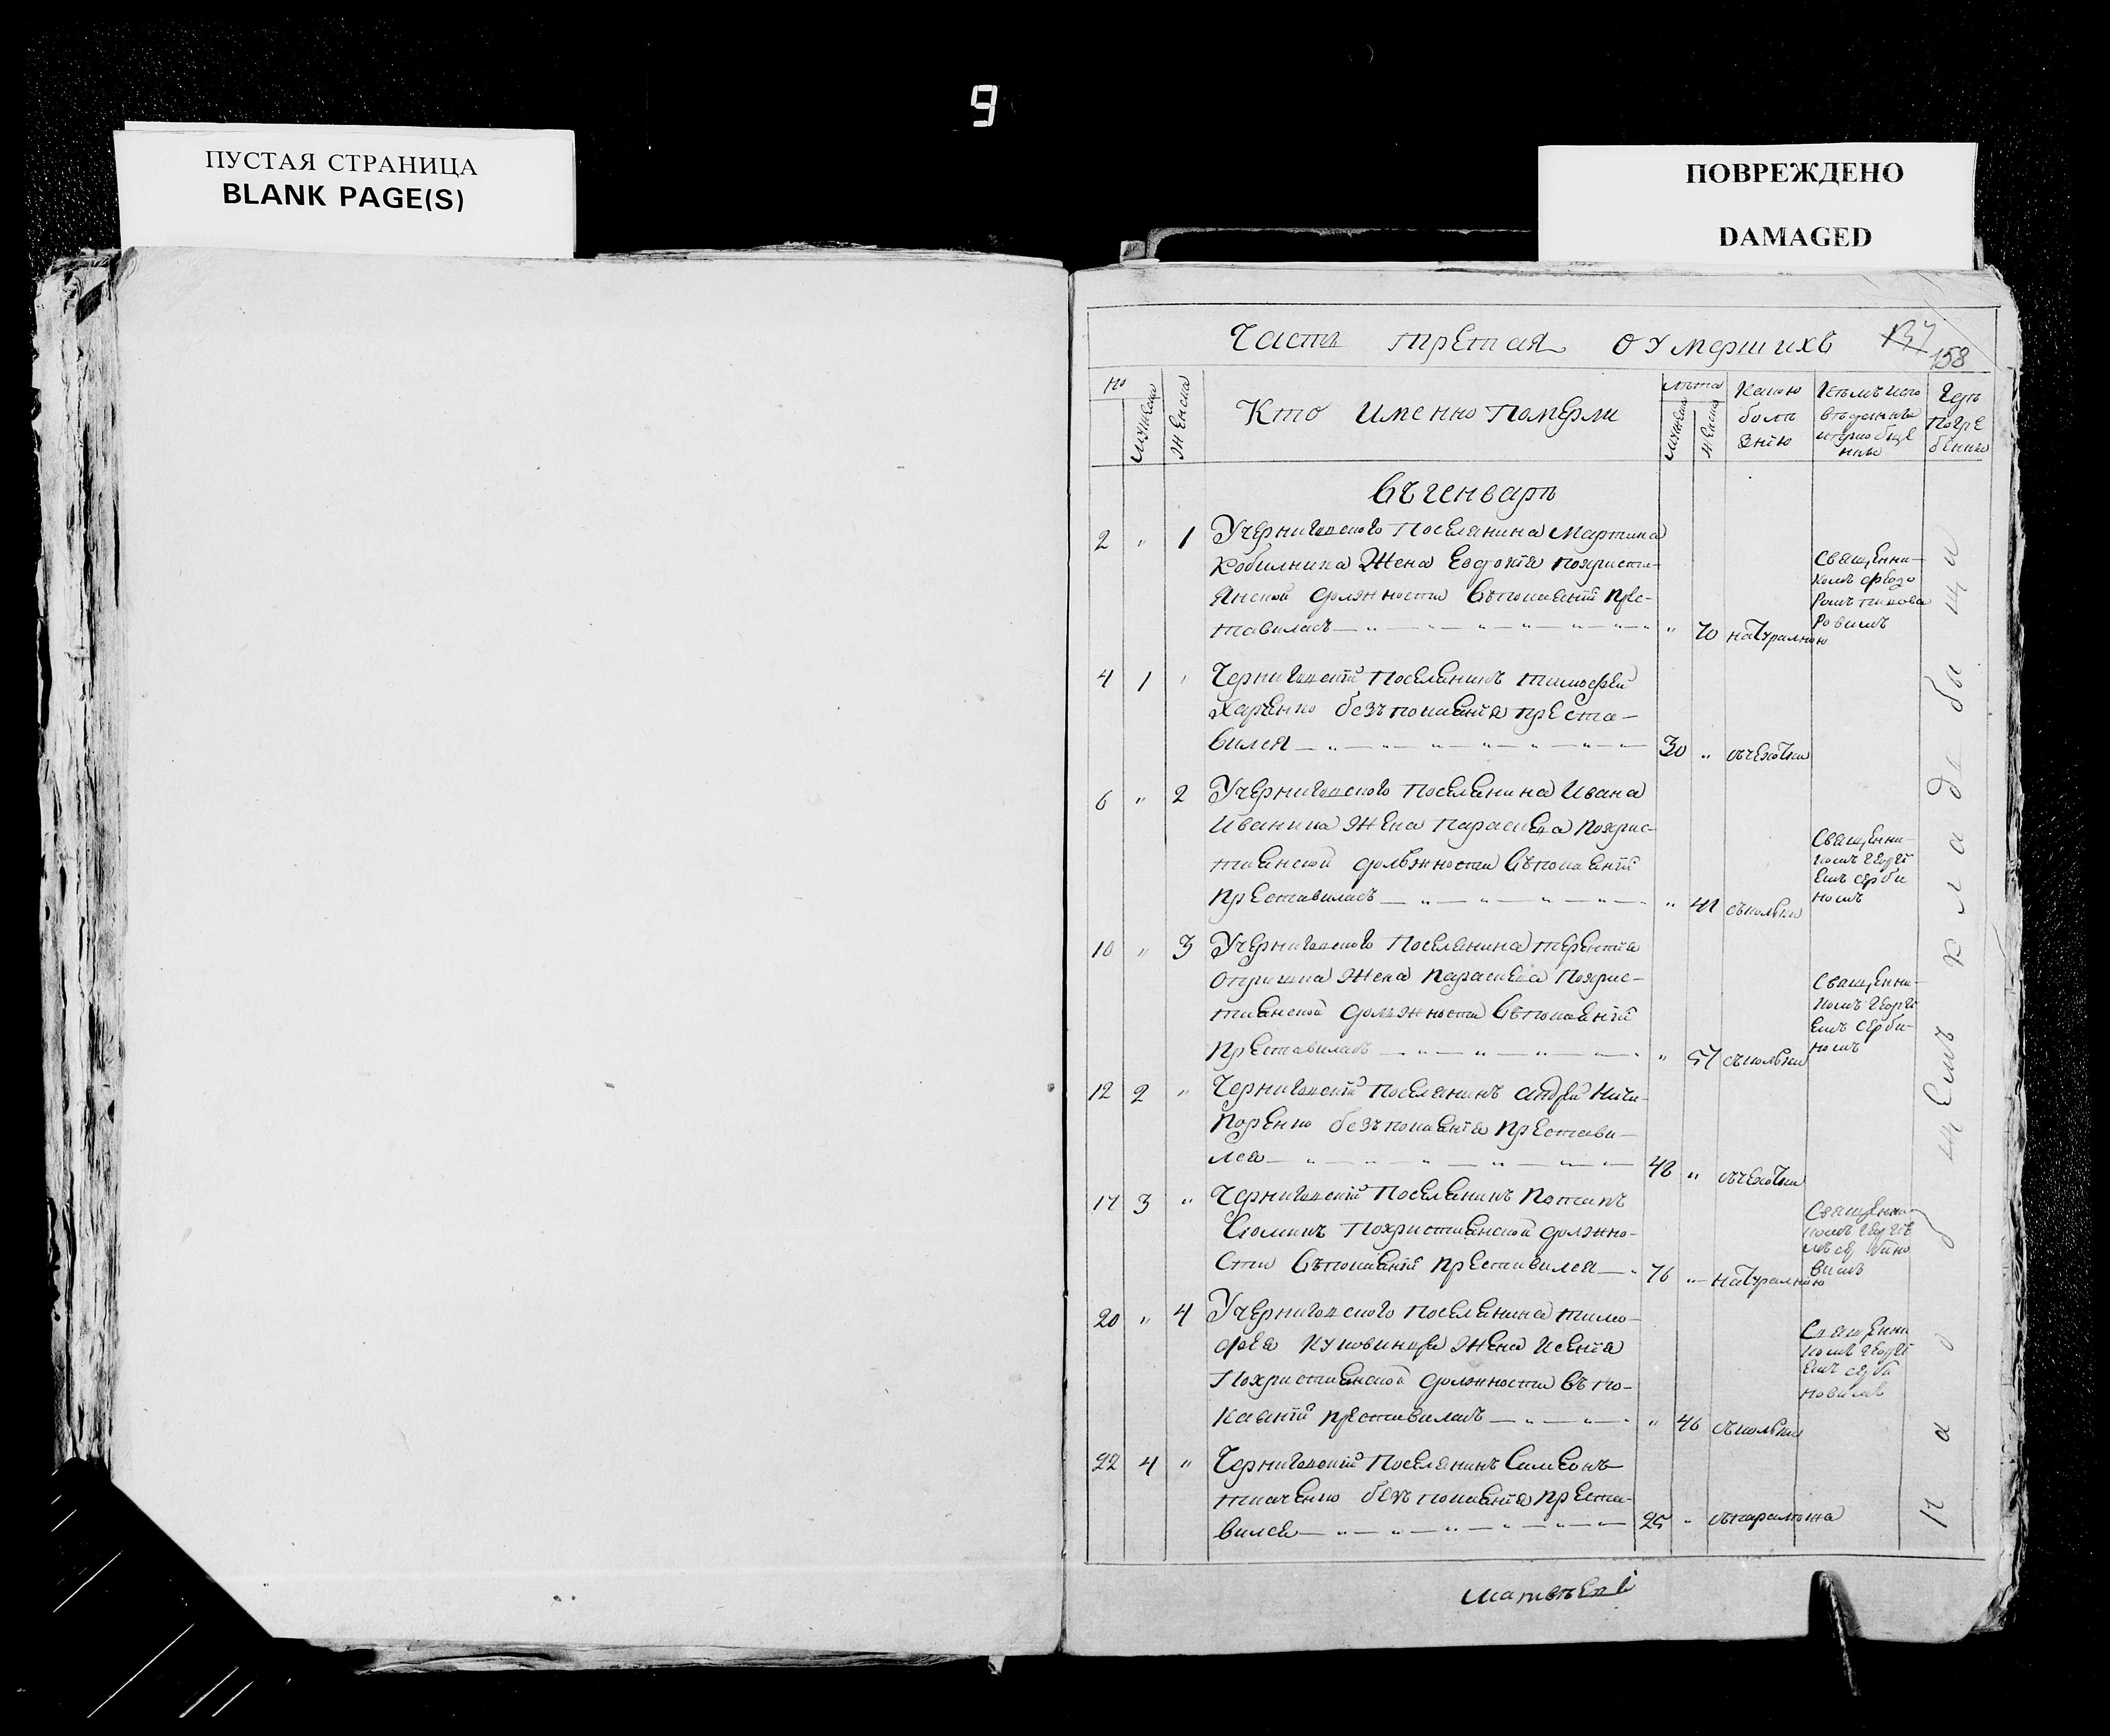 9
ПУСТАЯ СТРАНИЦА
BLANK PAGE(S)
ПОВРЕЖДЕНО
DAMAGED
Часть третая о умершихъ
137
158
№
мужеска
женска
Кто именно померли
лѣта
мужеска
женска
Какою
болѣ
знію
Кѣмъ испо
вѣданны
и приобще
ны
Гдѣ
Погре
бенны
Въ генварѣ
2 " 1 У черниговского поселянина Мартина
Кобилника Жена Евдокія по христи-
янской должности въ покаяніи прес-
тавилась " 70 натуралною
Священни-
комъ Федо
ромъ
4 1 " Черниговскій поселянинъ Тимофей
Харченко безъ покаянія преста-
вился 30 " съ чехотки
6 " 2 У черниговского поселянина Ивана
Иваника жена Параскева по хрис-
тианской должности въ покаяніи
преставилась " 41 съ кольки
Священни-
комъ Георгі
емъ Серби
номъ
10 " 3 У черниговского поселянина Терентія
жена Параскева по хрис-
тианской должности въ покаяніи
преставилась " 57 съ кольки
Священни-
комъ Георгі
емъ Серби-
номъ
12 2 " Черниговскій поселянинъ Андрей Ничи-
поренко безъ покаянія престави-
лся 48 " съ чехотки
17 3 " Черниговскій поселянинъ Потапъ
по христианской должно-
сти въ покаяніи преставился 76 " натуралною
Священни
комъ Георгіе
мъ Сербино
вимъ
20 " 4 У черниговского поселянина Тимо-
фея жена Ксенія
По христианской должности въ по-
каяніи преставилась " 46 съ кольки
Священни
комъ Георгі
емъ Серби
новимъ
22 4 " Черниговскій поселянинъ Симеонъ
Ткаченко безъ покаянія преста-
вился 25 "
На общемъ кладбищи
Матвѣевъ